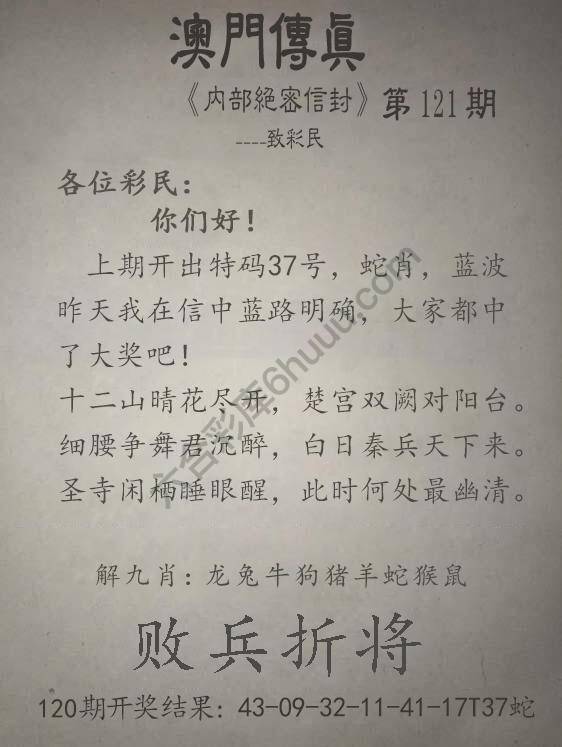 澳門傳真
《内部絕密信封》第121期
----致彩民
各位彩民：
你们好！
上期开出特码37号，蛇肖，蓝波
昨天我在信中蓝路明确，大家都中
了大奖吧！
十二山晴花尽开，楚宫双阙对阳台。
细腰争舞君沉醉，白日秦兵天下来。
圣寺闲栖睡眼醒，此时何处最幽清。
六合彩库6huuu.com
解九肖：龙兔牛狗猪羊蛇猴鼠
败兵折将
120期开奖结果：43-09-32-11-41-17T37蛇